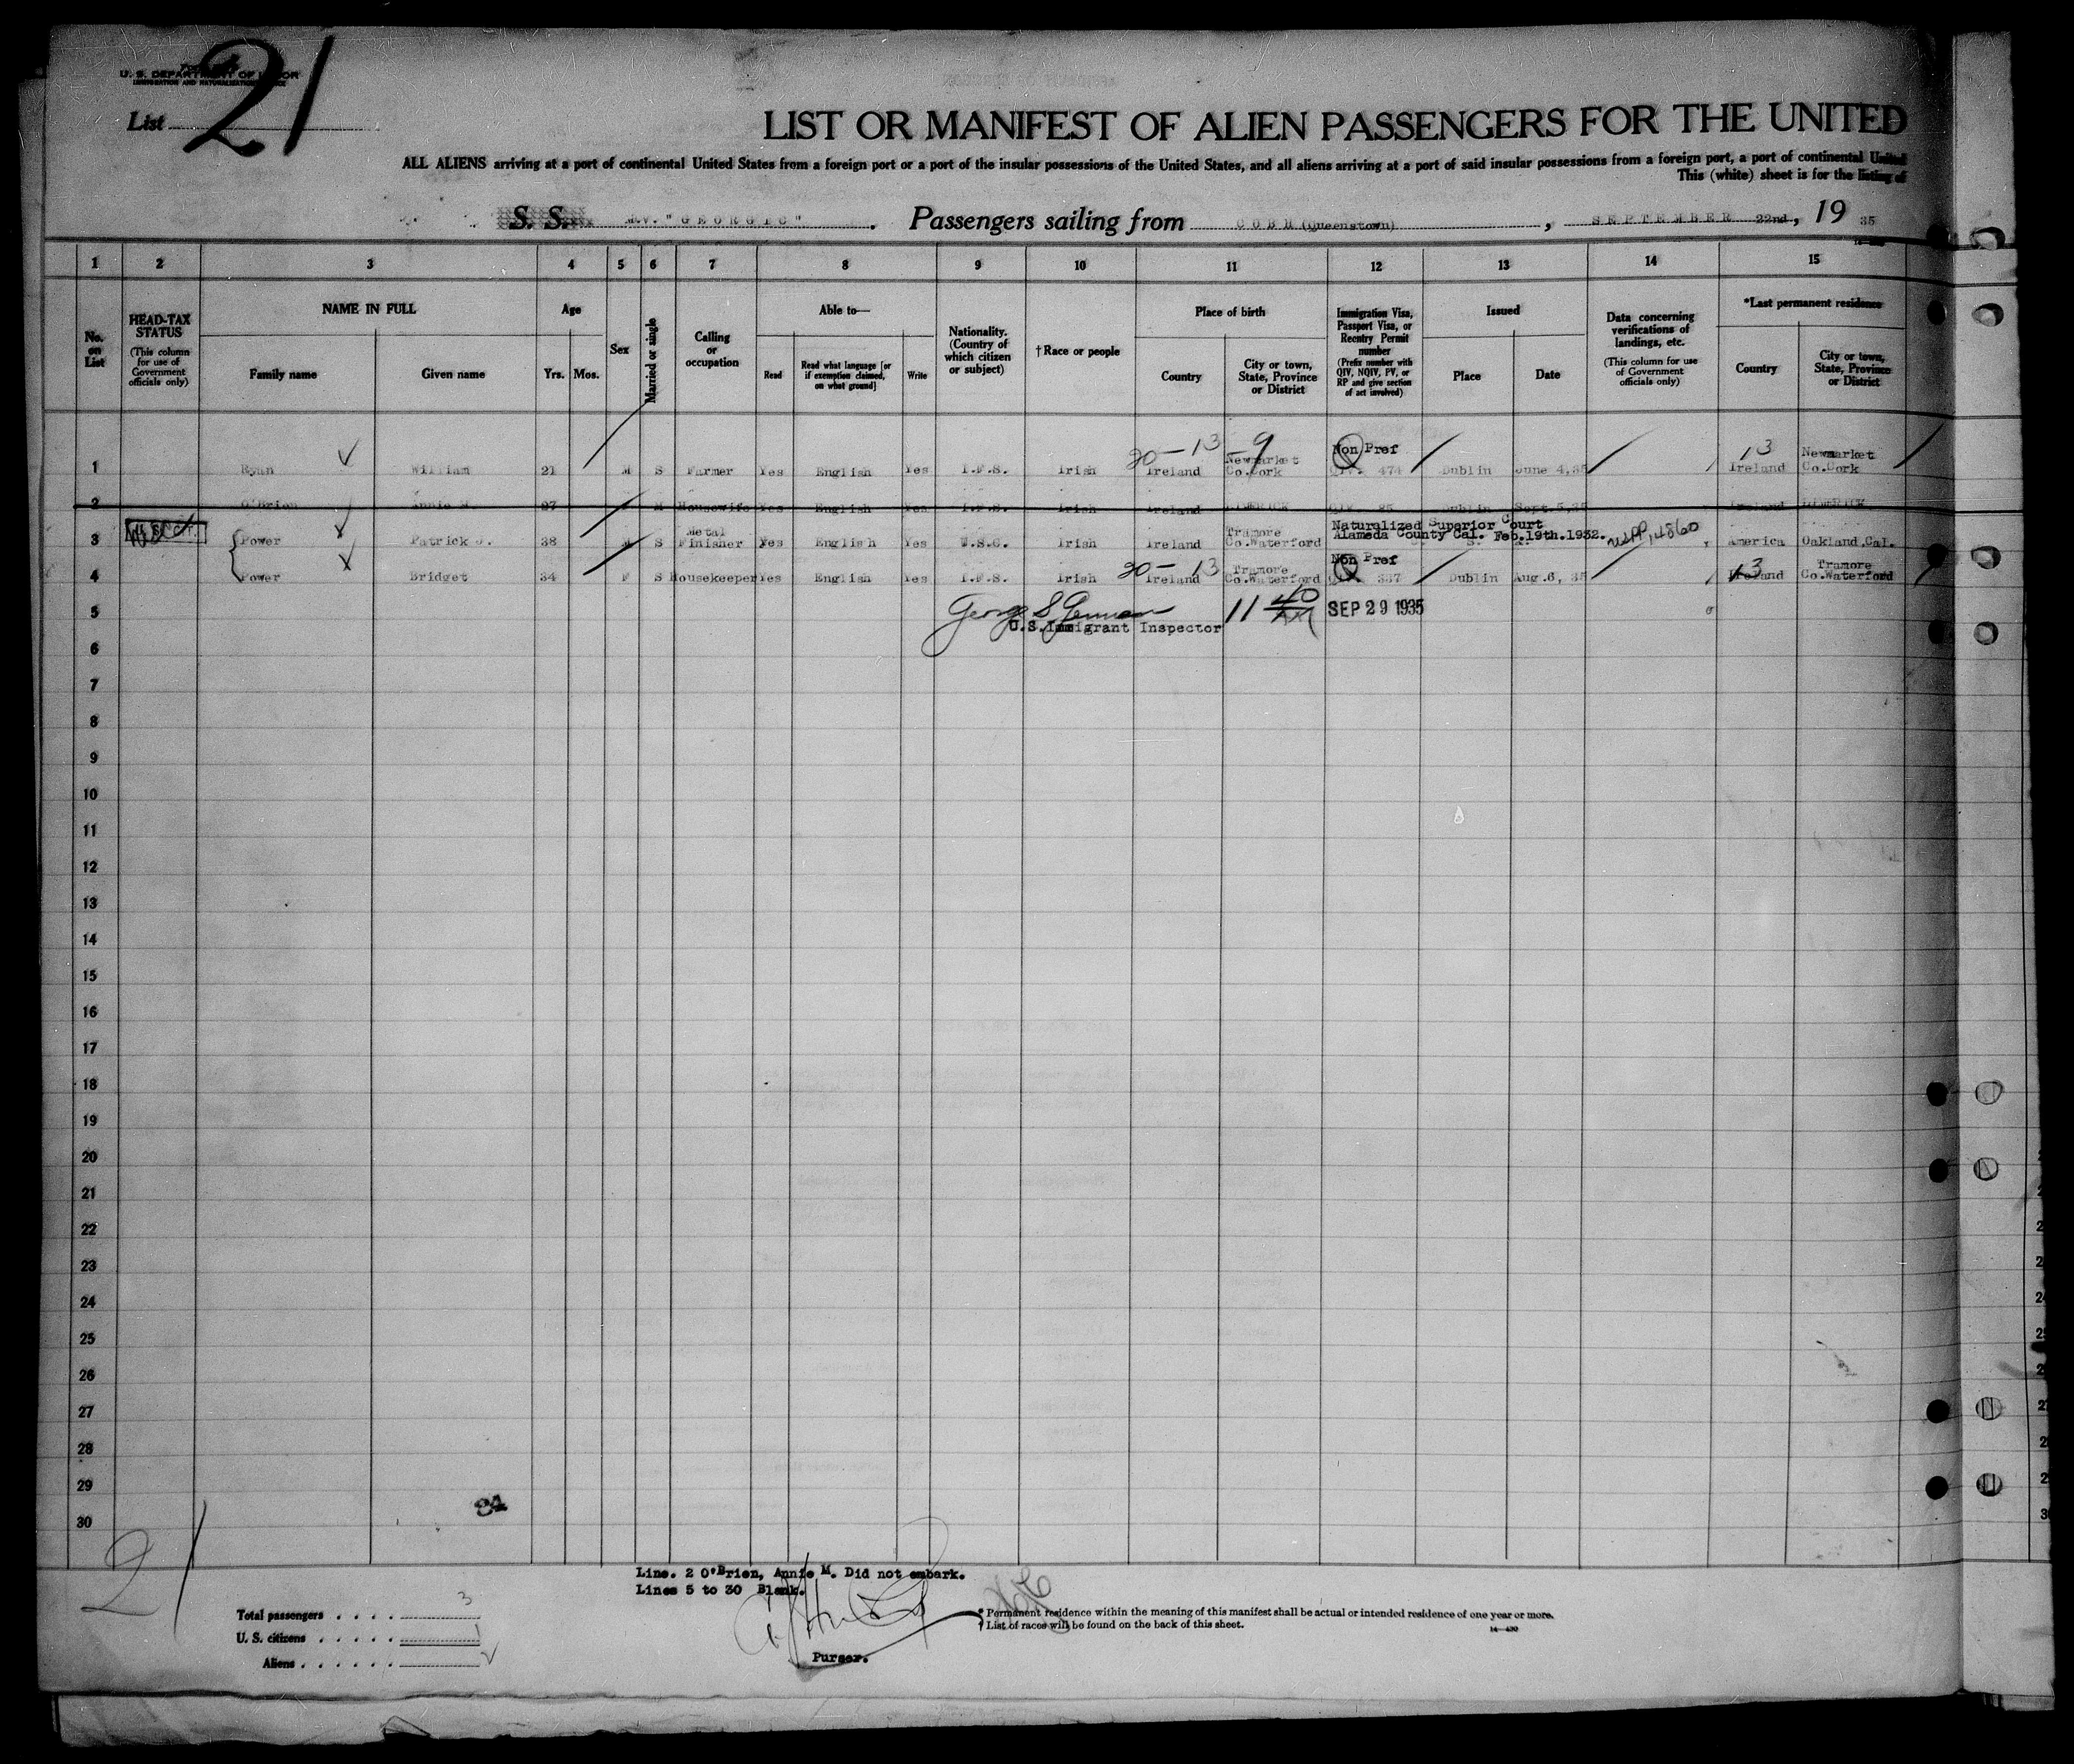 U. S. DEPARTMENT OF LABOR
IMMIGRATION AND NATURALIZATION SERVICE
List 21
LIST OR MANIFEST OF ALIEN PASSENGERS FOR THE UNITED
ALL ALIENS arriving at a port of continental United States from a foreign port or a port of the insular possessions of the United States, and all aliens arriving at a port of said insular possessions from a foreign port, a port of continental United
This (white) sheet is for the listing of
S. S. M.V. "GEORGIC". Passengers sailing from COBH (Queenstown), SEPTEMBER 22nd, 19 35
1 2 3 4 5 6 7 8 9 10 11 12 13 14 15
No. on List
HEAD-TAX STATUS (This column for use of Government officials only)
NAME IN FULL
Family name Given name
Age
Yrs. Mos.
Sex
Married or single
Calling or occupation
Able to—
Read Read what language [or if exemption claimed, on what ground] Write
Nationality. (Country of which citizen or subject)
†Race or people
Place of birth
Country City or town, State, Province or District
Immigration Visa, Passport Visa, or Reentry Permit number (Prefix number with QIV, NQIV, PV, or RP and give section of act involved)
Issued
Place Date
Data concerning verifications of landings, etc. (This column for use of Government officials only)
*Last permanent residence
Country City or town, State, Province or District
20-13 -9 Non Pref 13
1 Ryan William 21 M S Farmer Yes English Yes I.F.S. Irish Ireland Newmarket Co.Cork QIV. 474 Dublin June 4,35 Ireland Newmarket Co.Cork
2 O'Brien Annie M. 27 M Housewife Yes English Yes I.F.S. Irish Ireland LIMERICK QIV. 95 Dublin Sept.5,35 Ireland LIMERICK
3 Power Patrick J. 38 M S Metal Finisher Yes English Yes U.S.C. Irish Ireland Tramore Co.Waterford Naturalized Superior Court Alameda County Cal. Feb.19th.1932. America Oakland,Cal.
20-13 Non Pref 13
4 Power Bridget 34 F S Housekeeper Yes English Yes I.F.S. Irish Ireland Tramore Co.Waterford QIV. 337 Dublin Aug.6, 35 Ireland Tramore Co.Waterford
5 11 40 AM SEP 29 1935
U.S.Immigrant Inspector
6
7
8
9
10
11
12
13
14
15
16
17
18
19
20
21
22
23
24
25
26
27
28
29
30
84
21
Line. 2 O'Brien, Annie M. Did not embark.
Lines 5 to 30 Blank.
Total passengers . . . . 3
U. S. citizens . . . . . 1
Aliens . . . . . .
Purser.
* Permanent residence within the meaning of this manifest shall be actual or intended residence of one year or more.
† List of races will be found on the back of this sheet.
14—430